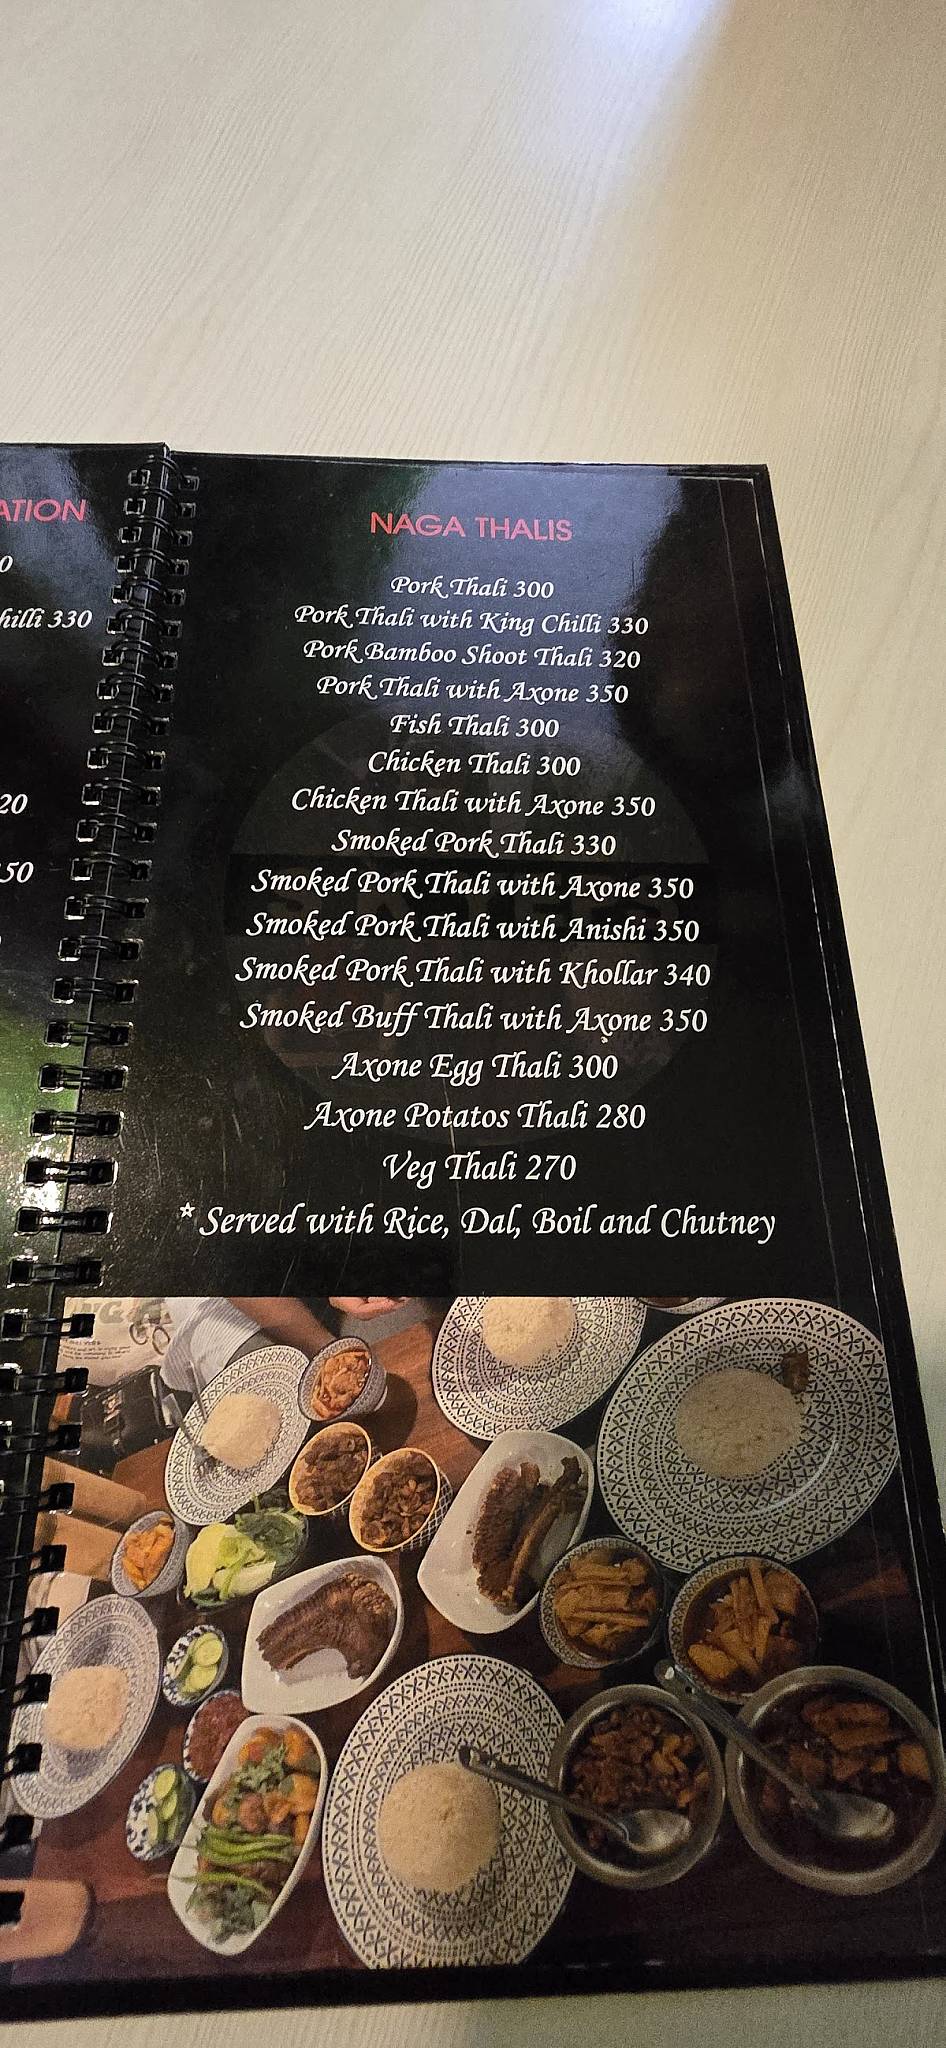 ATION
0
hilli 330
20
50
NAGA THALIS
Pork Thali 300
Pork Thali with King Chilli 330
Pork Bamboo Shoot Thali 320
Pork Thali with Axone 350
Fish Thali 300
Chicken Thali 300
Chicken Thali with Axone 350
Smoked Pork Thali 330
Smoked Pork Thali with Axone 350
Smoked Pork Thali with Anishi 350
Smoked Pork Thali with Khollar 340
Smoked Buff Thali with Axone 350
Axone Egg Thali 300
Axone Potatos Thali 280
Veg Thali 270
* Served with Rice, Dal, Boil and Chutney